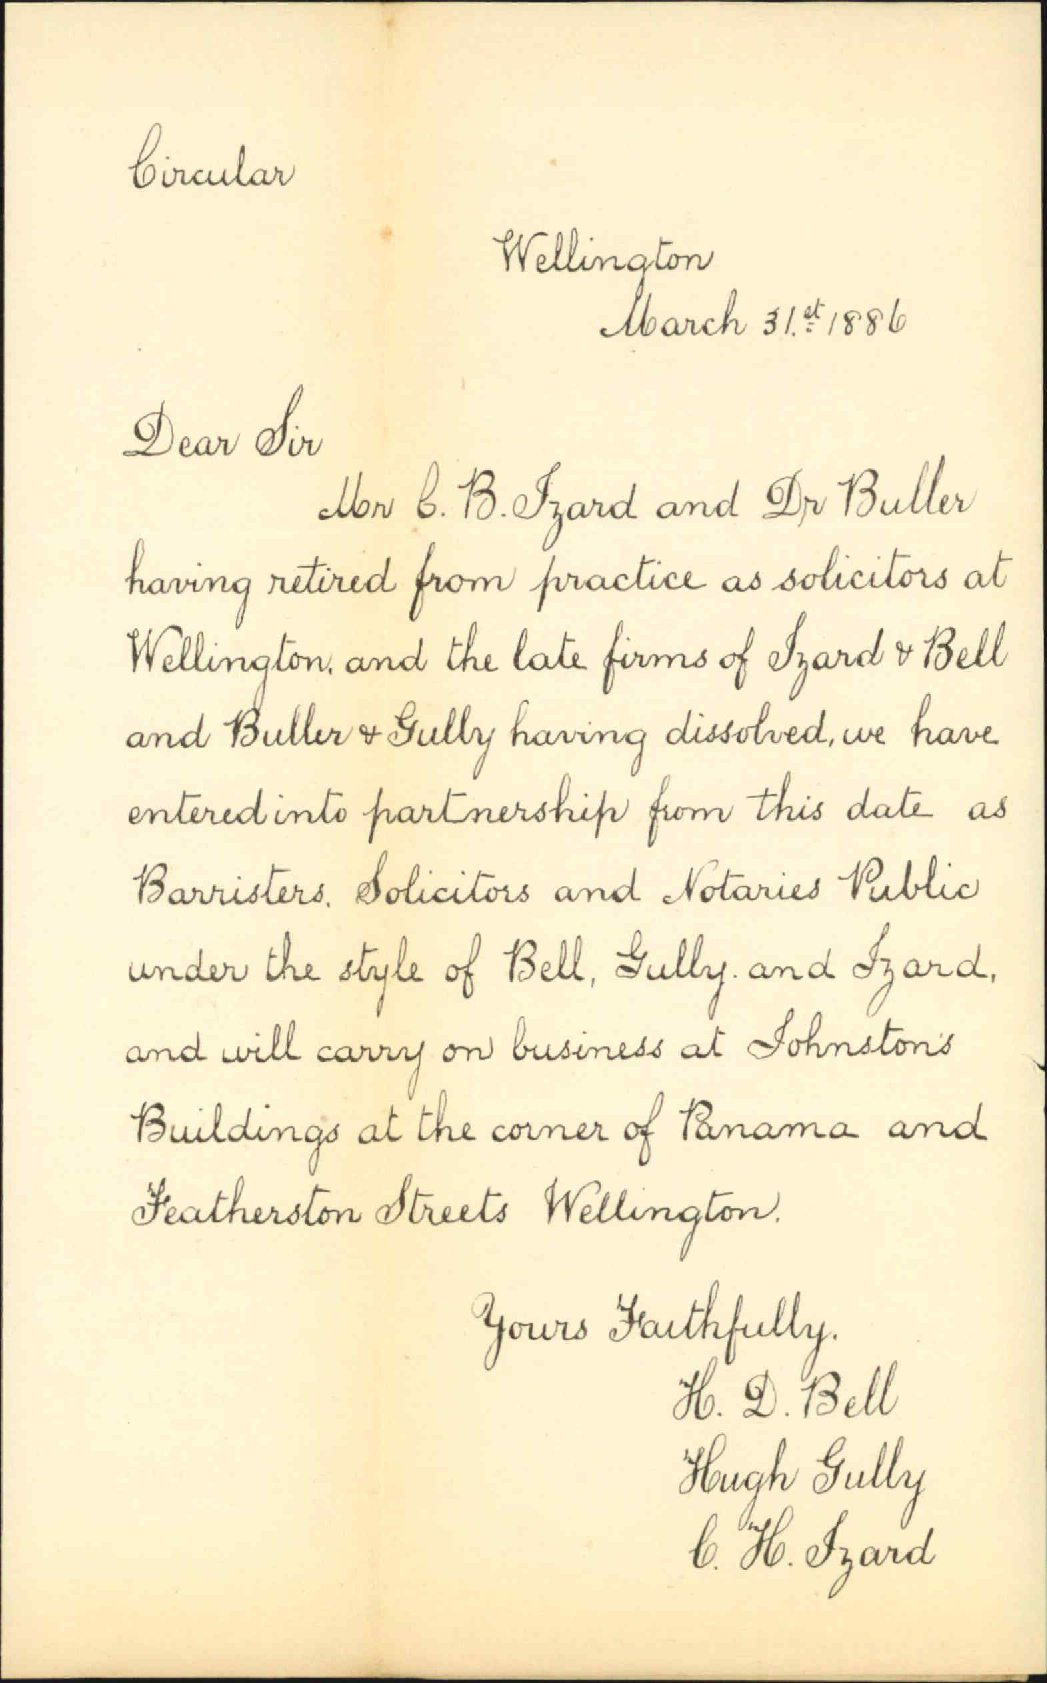 Circular
Wellington
March 31.st 1886
Dear Sir
Mr C. B. Izard and Dr Buller
having retired from practice as solicitors at
Wellington, and the late firms of Izard & Bell
and Buller & Gully having dissolved, we have
entered into partnership from this date as
Barristers, Solicitors and Notaries Public
under the style of Bell, Gully and Izard,
and will carry on business at Johnston's
Buildings at the corner of Panama and
Featherston Streets Wellington.
Yours Faithfully.
H. D. Bell
Hugh Gully
C. H. Izard